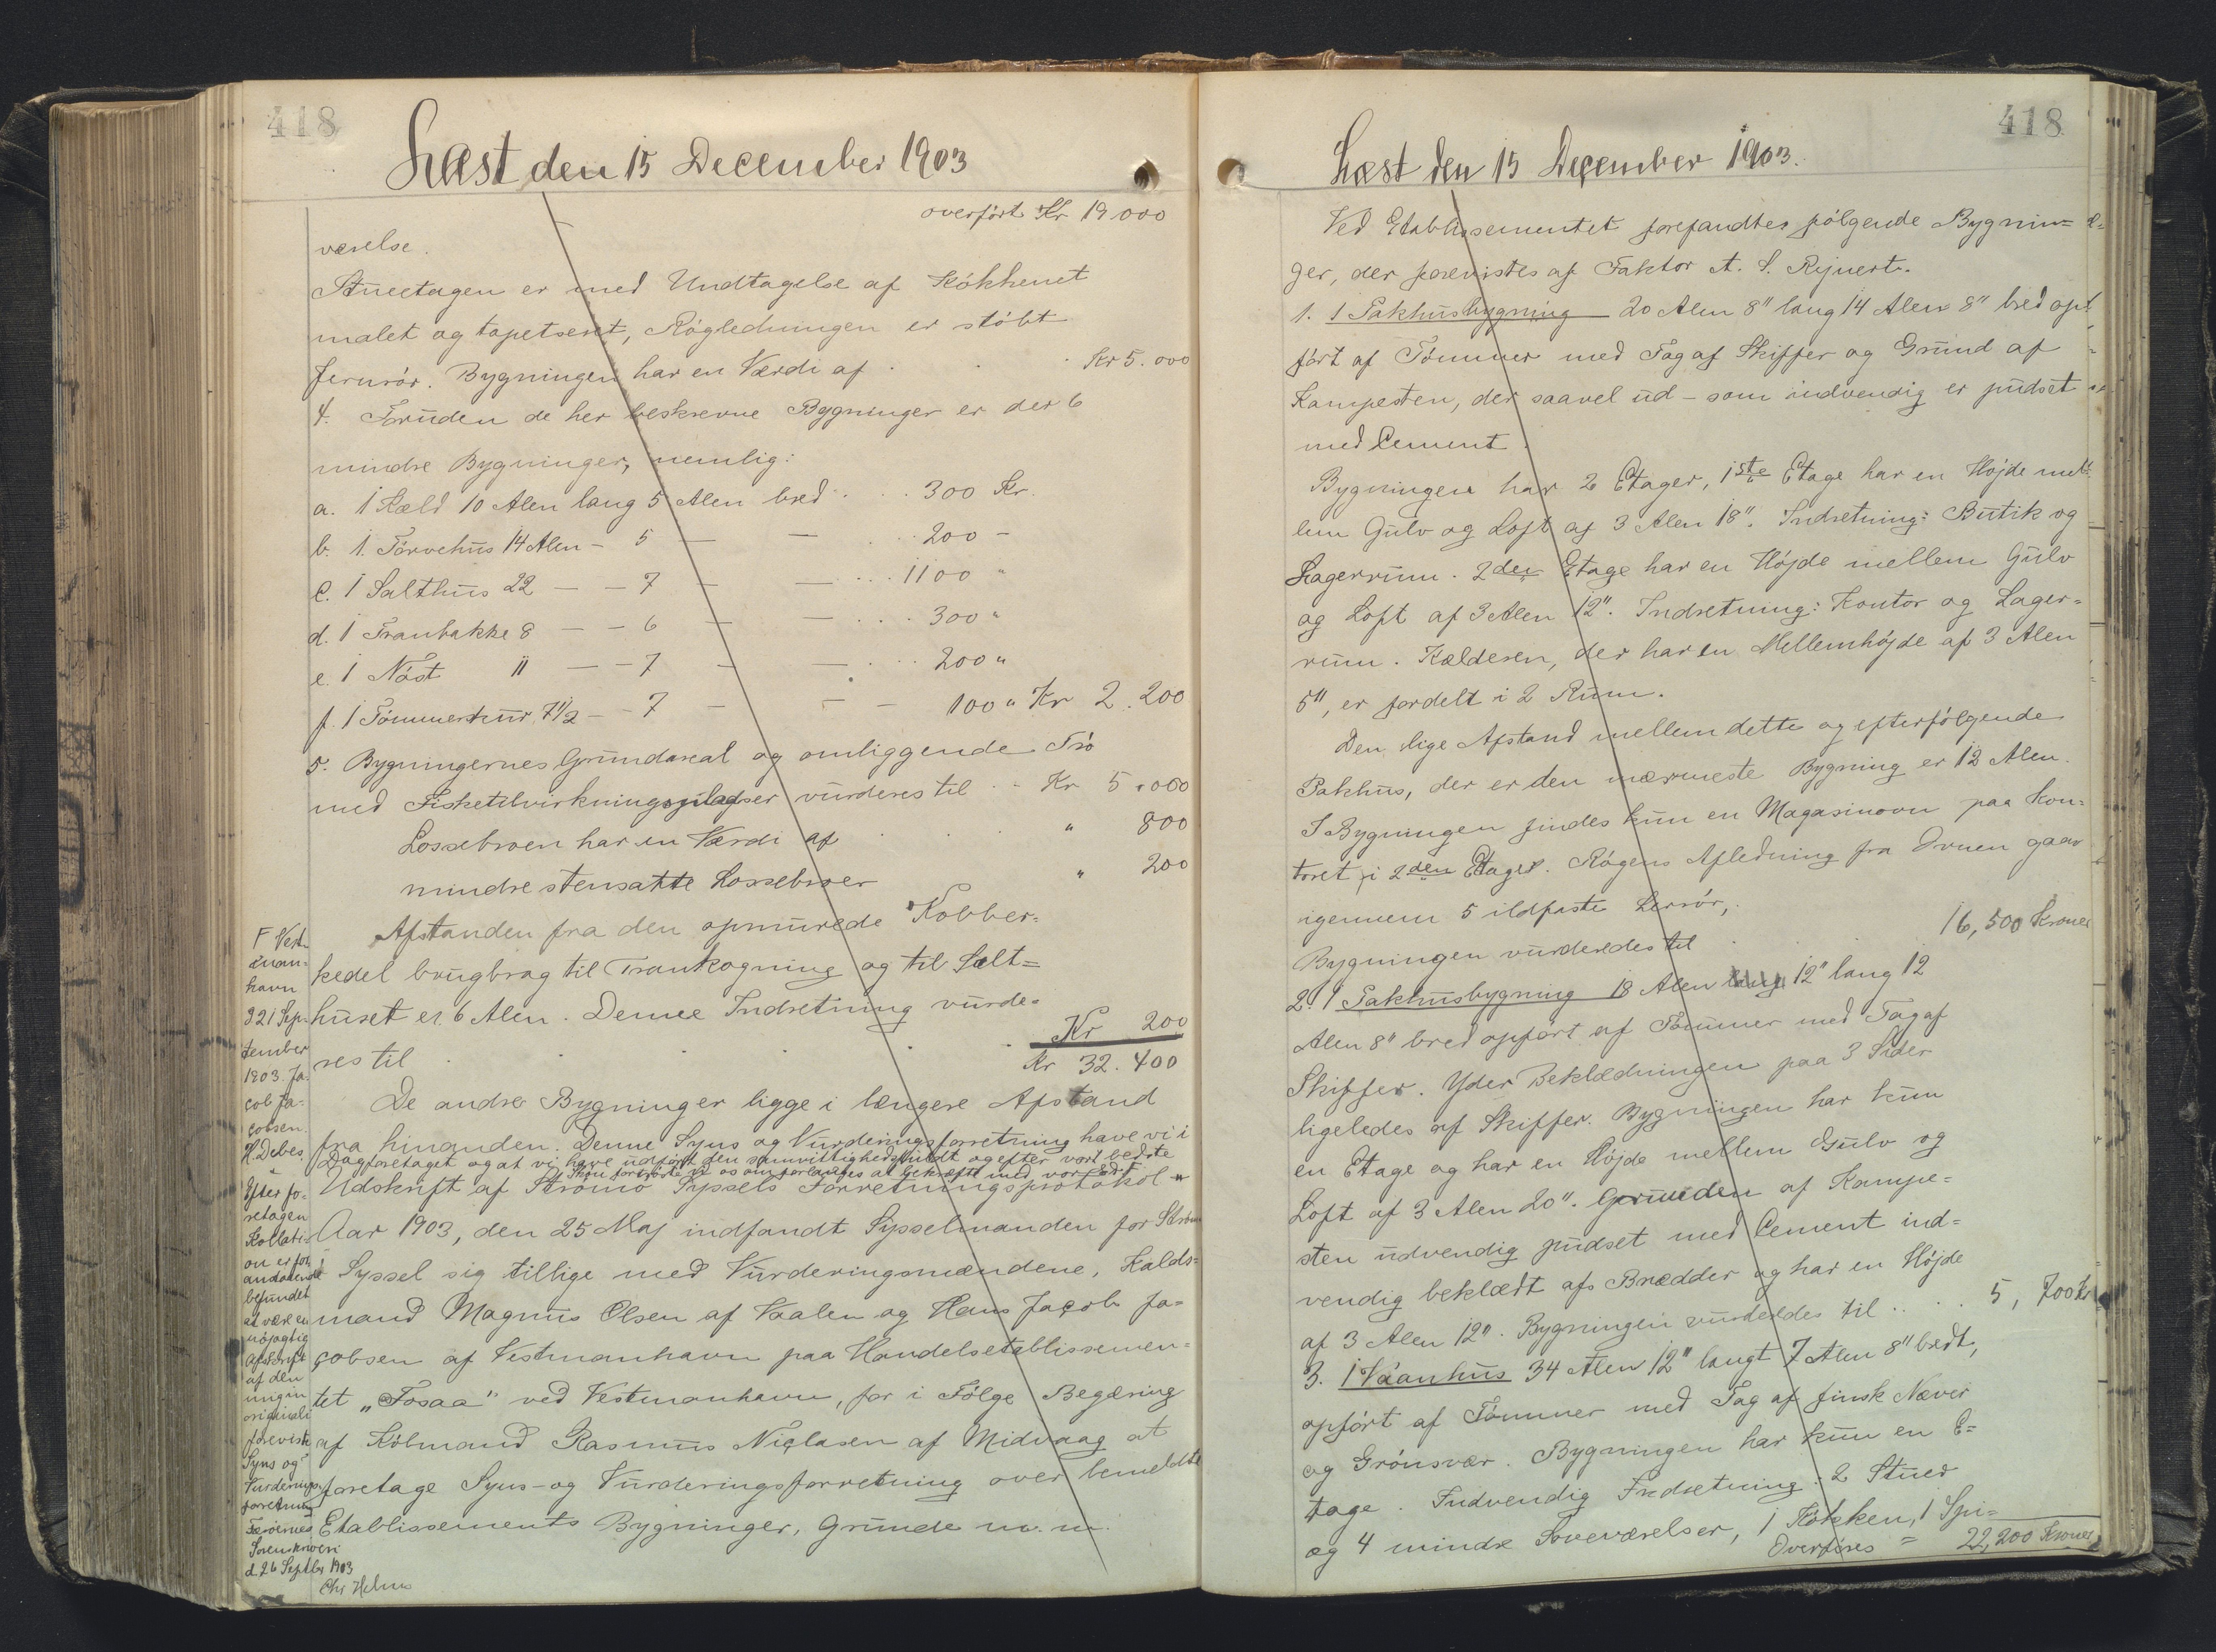 418
Læst den 15 December 1903
overført Kr 19.000
værelse.
Stueetagen er med Undtagelse af Kökkenet
malet og tapetseret, Rögledningen er stöbt
Jernrör. Bygningen har en Værdi af . . . Kr 5.000
4. Foruden de her beskrevne Bygninger er der 6
mindre Bygninger, nemlig:
a. 1 Kæld 10 Alen lang 5 Alen bred . . . 300 Kr.
b. 1. Törvehus 14 Alen - 5 — — . . . 200 -
c. 1 Salthus 22 — - 7 — — . . . 1100 "
d. 1 Tranbakke 8 — - 6 — — . . . 300 "
e. 1 Nöst 11 — - 7 — — . . . 200 "
f. 1 Tömmerskur 7 1/2 - - 7 — — — 100 " Kr 2.200
5. Bygningernes Grundareal og omliggende Trö
med Fisketilvirkningspladser vurderes til . . Kr 5.000
Lossebroen har en Værdi af . . . " 800
mindre stensatte Lossebroer " 200
Afstanden fra den opmurede Kobber=
kedel brugbrag til Trankogning og til Salt=
huset er 6 Alen. Denne Indretning vurde=
res til . . . . Kr 200
Kr 32.400
De andre Bygninger ligge i længere Afstand
fra hinanden. Denne Syns og Vurderingsforretning have vi i
Dag foretaget og at vi have udført den samvittighedsfuldt og efter vort bedste
Skøn tilbyde vi os om forlanges at bekræfte med vor Ed.
Udskrift af Strömö Syssels Forretningsprotokol "
Aar 1903, den 25 Maj indfandt Sysselmanden for Ström
ö Syssel sig tillige med Vurderingsmændene, Kalds=
mand Magnus Olsen af Vaalen og Hans Jacob Ja=
cobsen af Vestmanhavn paa Handelsetablissemen=
tet „Fosaa" ved Vestmanhavn, for i Fölge Begæring
af Köbmand Rasmus Niclasen af Midvaag at
foretage Syns- og Vurderingsforretning over bemeldte
Etablissements Bygninger, Grunde m. m.
F Vest-
man=
havn
d 21 Sep-
tember
1903. Ja-
cob Ja-
cobsen.
H. Debes
Efter fo-
retagen
Kollati-
on er for-
andstaaende
befundet
at være en
nöjagtig
Afskrift
af den
mig in
originali
foreviste
Syns og
Vurderings-
forretning
Færöernes
Sorenskriveri
d. 26 Septbr 1903
Chr Helms
418
Læst den 15 December 1903.
Ved Etablissementet forefandtes fölgende Bygnin=
ger, der forevistes af Faktor A. S. Rejnert.
1. 1 Pakhusbygning 20 Alen 8" lang 14 Alen 8" bred op=
fört af Tömmer med Tag af Skiffer og Grund af
Kampesten, der saavel ud- som indvendig er pudset
med Cement.
Bygningen har 2 Etager, 1ste Etage har en Höjde mel=
lem Gulv og Loft af 3 Alen 18". Indretning: Butik og
Lagerrum. 2den Etage har en Höjde mellem Gulv
og Loft af 3 Alen 12". Indretning: Kontor og Lager=
rum. Kælderen, der har en Mellemhöjde af 3 Alen
5", er fordelt i 2 Rum.
Den lige Afstand mellem dette og efterfölgende
Pakhus, der er den nærmeste Bygning er 12 Alen.
I Bygningen findes kun en Magasinovn paa Kon=
toret i 2den Etage. Rögens Afledning fra Ovnen gaar
igennem 5" ildfaste Lerrör,
Bygningen vurderedes til . . . 16,500 Kroner
2. 1 Pakhusbygning 18 Alen 12" lang 12
Alen 8" bred opfört af Tömmer med Tag af
Skiffer. Yder Beklædningen paa 3 Sider
ligeledes af Skiffer. Bygningen har kun
en Etage og har en Höjde mellem Gulv og
Loft af 3 Alen 20". Grunden af Kampe=
sten udvendig pudset med Cement ind=
vendig beklædt afs Brædder og har en Höjde
af 3 Alen 12". Bygningen vurderedes til . . . 5,700 Kr
3. 1 Vaanhus 34 Alen 12" langt 7 Alen 8" bredt,
opfört af Tömmer med Tag af finsk Næver
og Grönsvær. Bygningen har kun en E=
tage. Indvendig Indretning: 2 Stuer
og 4 mindre Soveværelser, 1 Kökken, 1 Spi=
Overföres = 22,200 Kroner